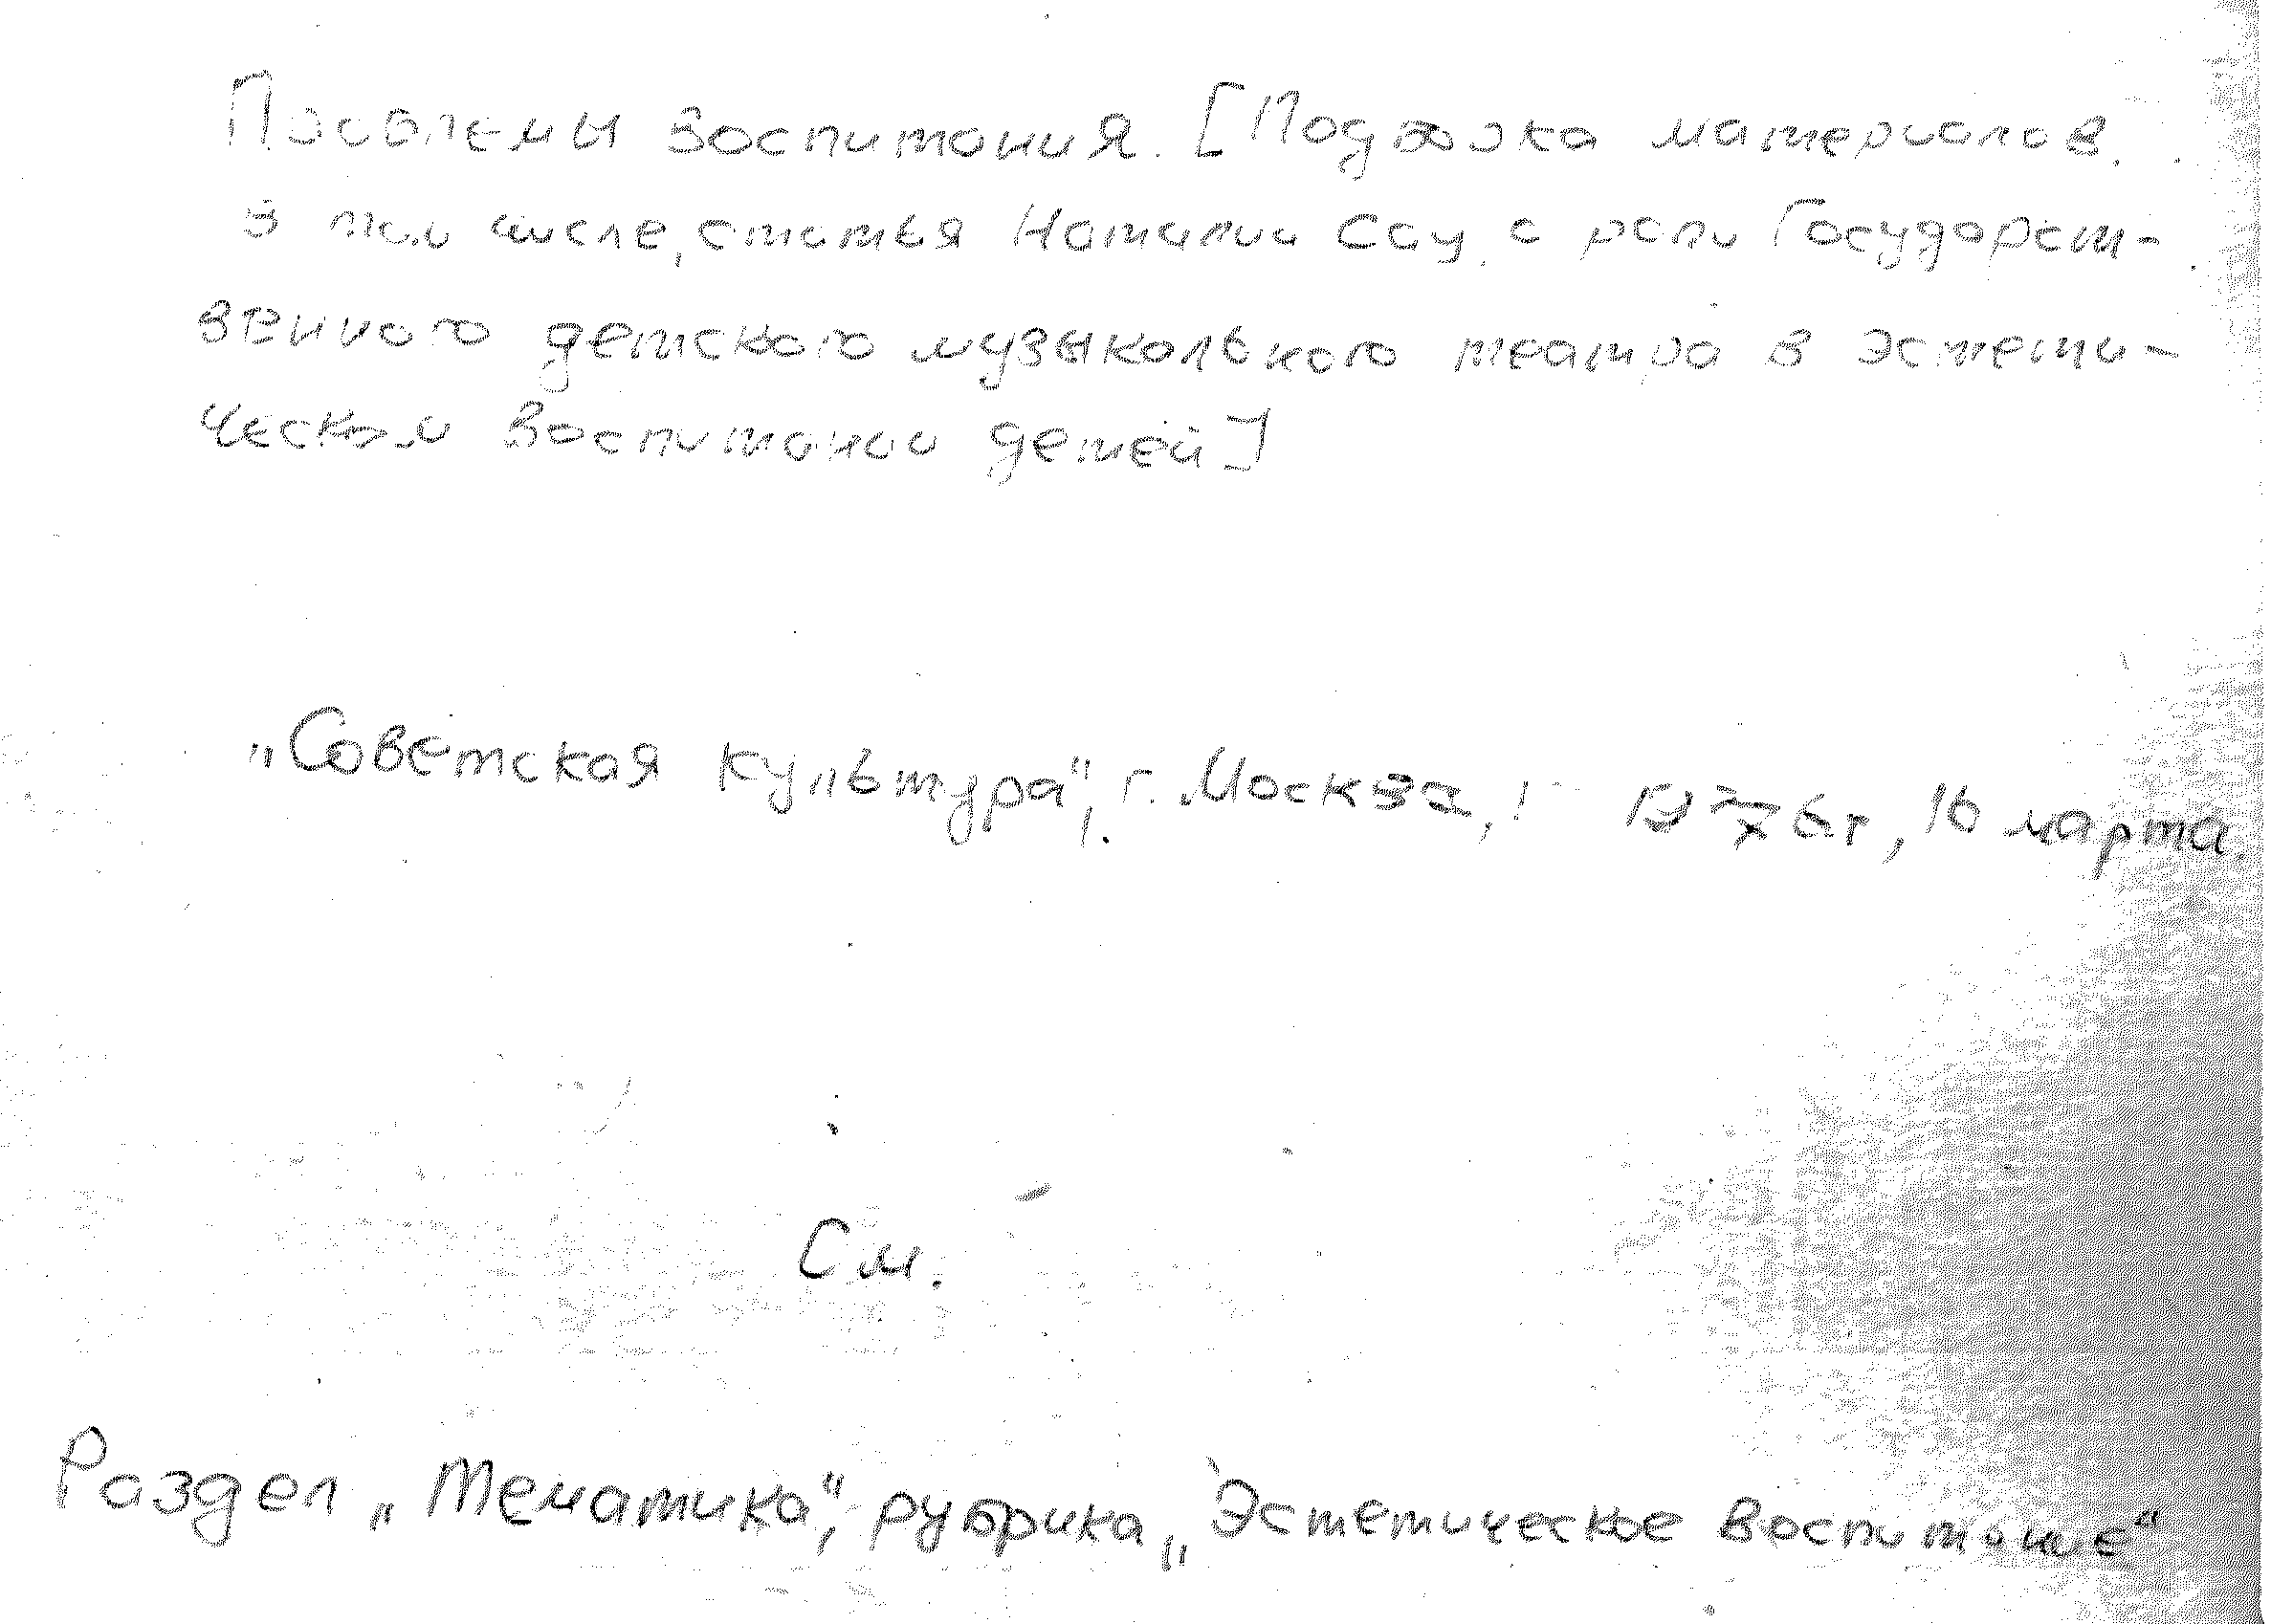 Проблемы воспитания. [Подборка материалов,
в том числе, статья Наталии Сац о роли Государст-
венного детского музыкального театра в эстети-
ческом воспитании детей]
„Советская культура“, г. Москва, 1976г, 16 марта.
См.
Раздел „Тематика“, рубрика „Эстетическое воспитание“